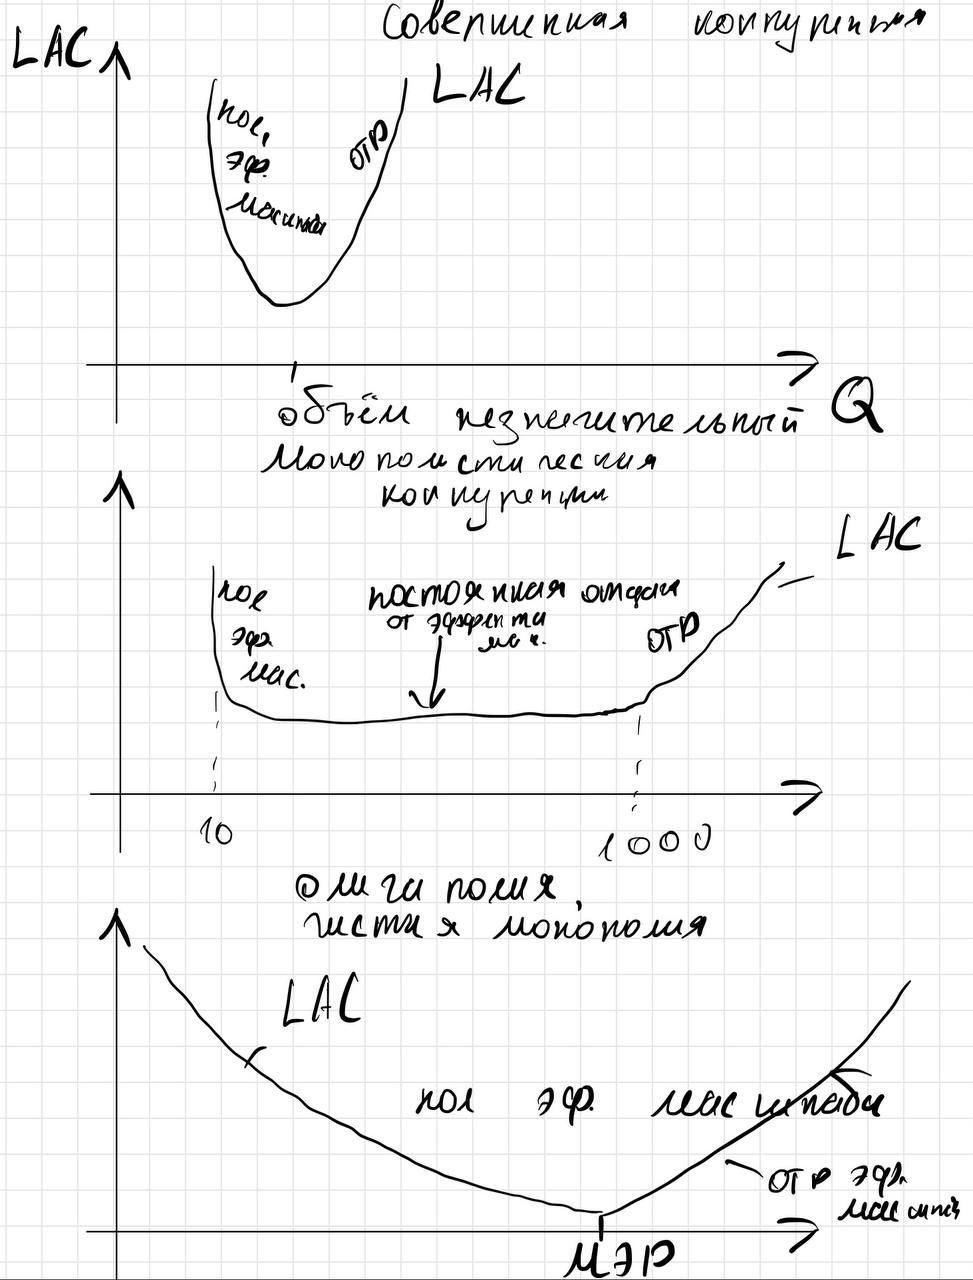 Совершенная конкуренция
LAC
LAC
пол,
эф.
масштаба
отр
Q
объём незначительный
Монополистическая
конкуренция
LAC
пол
эф
мас.
постоянная отдача
от эффекта
мас.
отр
10
1000
олигополия,
чистая монополия
LAC
пол эф. масштаба
отр эфф.
масштаба
МЭР